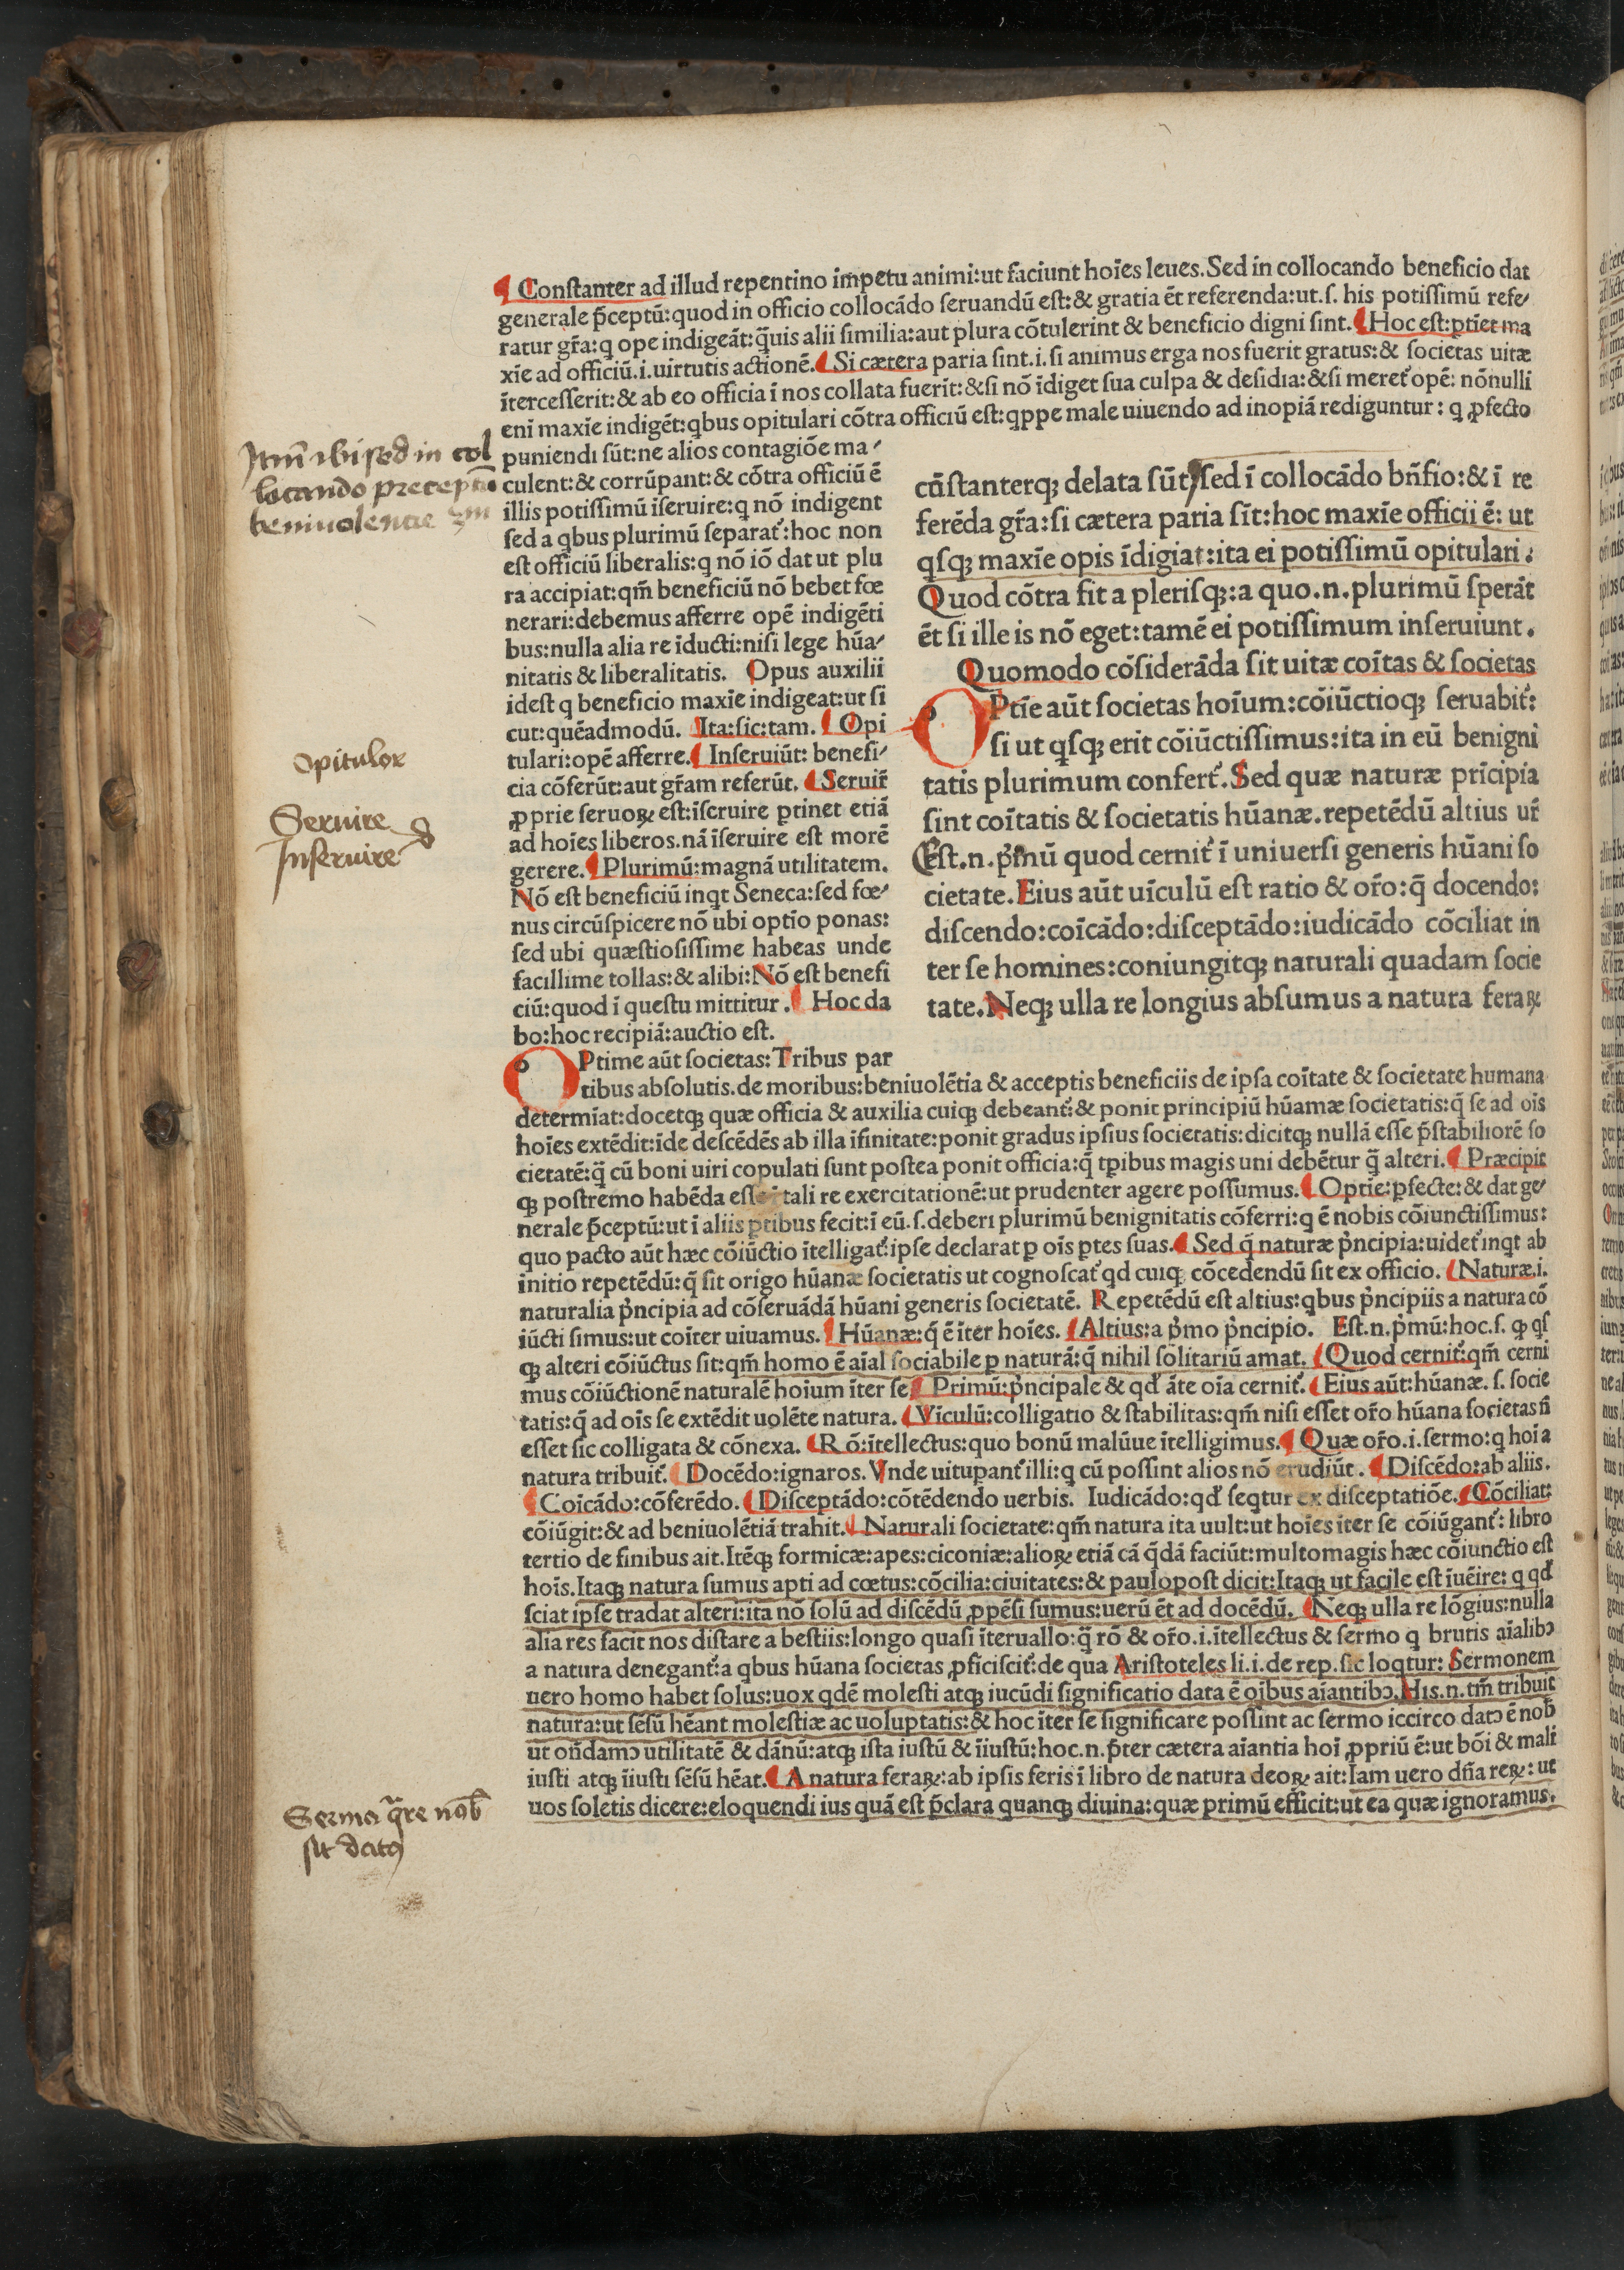 Constanter ad illud repentino impetu animi:ut faciunt hoīes leues. Sed in collocando beneficio dat
generale p̄ceptū:quod in officio collocādo ſeruandū eſt:& gratia ēt referenda:ut.ſ. his potiſſimū refe
ratur gr̄a:q ope indigeāt:q̄uis alii ſimilia:aut plura cōtulerint & beneficio digni ſint. Hoc eſt:ꝑtiet ma
xīe ad officiū.i.uirtutis actionē. Si cætera paria ſint.i.ſi animus erga nos fuerit gratus:& ſocietas uitæ
īterceſſerit:& ab eo officia ī nos collata fuerīt:&ſi nō īdiget ſua culpa & deſidia:&ſi meret᷑ opē: nōnulli
eni maxīe indigēt:qbus opitulari cōtra officiū eſt:qppe male uiuendo ad inopiā rediguntur: q ꝓfecto
puniendi ſūt:ne alios contagiōe ma
culent:& corrūpant:& cōtra officiū ē
illis potiſſimū īſeruire:q nō indigent
ſed a qbus plurimū ſeparat᷑:hoc non
eſt officiū liberalis:q nō iō dat ut plu
ra accipiat:qm̄ beneficiū nō bebet fœ
nerari:debemus afferre opē indigēti
bus:nulla alia re īducti:niſi lege hūa
nitatis & liberalitatis. Opus auxilii
ideſt q beneficio maxīe indigeat:ut ſi
cut:quēadmodū. Ita:ſic:tam. Opi
tulari:opē afferre. Inſeruiūt: benefi
cia cōferūt:aut gr̄am referūt. Seruir̄
ꝓprie ſeruoꝝ eſt:īſeruire ꝑtinet etiā
ad hoīes liberos.nā īſeruire eſt morē
gerere. Plurimū:magnā utilitatem.
Nō eſt beneficiū inqt Seneca:ſed fœ
nus circūſpicere nō ubi optīo ponas:
ſed ubi quæſtioſiſſime habeas unde
facillime tollas:& alibi:Nō eſt benefi
ciū:quod ī queſtu mittitur. Hoc da
bo:hoc recipiā:auctio eſt.
cūſtanterqꝫ delata ſūt,ſed ī collocādo bn̄fio:& ī re
ferēda gr̄a:ſi cætera paria ſīt:hoc maxīe officii ē: ut
qſqꝫ maxīe opis īdigiat:ita ei potiſſimū opitulari.
Quod cōtra fit a pleriſqꝫ:a quo.n.plurimū ſperāt
ēt ſi ille is nō eget:tamē ei potiſſimum inſeruiunt.
Quomodo cōſiderāda ſit uitæ coītas & ſocietas
OPtīe aūt ſocietas hoīum:cōiūctioqꝫ ſeruabit᷑:
ſi ut qſqꝫ erit cōiūctiſſimus:ita in eū benigni
tatis plurimum confert᷑. Sed quæ naturæ prīcipia
ſint coītatis & ſocietatis hūanæ.repetēdū altius ur̄
Eſt.n.p̄mū quod cernit᷑ ī uniuerſi generis hūani ſo
cietate. Eius aūt uīculū eſt ratio & or̄o:q̄ docendo:
diſcendo:coīcādo:diſceptādo:iudicādo cōciliat in
ter ſe homines:coniungitqꝫ naturali quadam ſocie
tate. Neqꝫ ulla re longius abſumus a natura feraꝝ
OPtime aūt ſocietas: Tribus par
tibus abſolutis.de moribus:beniuolētia & acceptis beneficiis de ipſa coītate & ſocietate humana
determīat:docetqꝫ quæ officia & auxilia cuiqꝫ debeant᷑:& ponit principiū hūamæ ſocietatis:q̄ ſe ad oīs
hoīes extēdit:īde deſcēdēs ab illa īfinitate:ponit gradus ipſius ſocietatis:dicitqꝫ nullā eſſe p̄ſtabiliorē ſo
cietatē:q̄ cū boni uiri copulati ſunt poſtea ponit officia:q̄ tꝑibus magis uni debētur q̄ alteri. Præcipit
qꝫ poſtremo habēda tali re exercitationē:ut prudenter agere poſſumus. Optīe:ꝑfecte:& dat ge
nerale p̄ceptū:ut ī aliis ꝑtibus fecit:ī eū.ſ.deberi plurimū benignitatis cōferri:q ē nobis cōiunctiſſimus:
quo pacto aūt hæc cōiūctio ītelligat᷑:ipſe declarat ꝑ oīs ꝑtes ſuas. Sed q̄ naturæ p̄ncipia:uidet᷑ inqt ab
initio repetēdū:q̄ ſit origo hūanæ ſocietatis ut cognoſcat᷑ qd cuiqꝫ cōcedendū ſit ex officio. Naturæ.i.
naturalia p̄ncipia ad cōſeruādā hūani generis ſocietatē. Repetēdū eſt altius:qbus p̄ncipiis a natura cō
iūcti ſimus:ut coīter uiuamus. Hūanæ:q̄ ē īter hoīes. Altius:a p̄mo p̄ncipio. Eſt.n.p̄mū:hoc.ſ. ꝙ qſ
qꝫ alteri cōiūctus ſit:qm̄ homo ē aīal ſociabile ꝑ naturā:q̄ nihil ſolitariū amat. Quod cernit᷑:qm̄ cerni
mus cōiūctionē naturalē hoīum īter ſe Primū:p̄ncipale & qđ āte oīa cernit᷑. Eius aūt:hūanæ.ſ. ſocie
tatis:q̄ ad oīs ſe extēdit uolēte natura. Vīculū:colligatio & ſtabilitas:qm̄ niſi eſſet or̄o hūana ſocietas n̄
eſſet ſic colligata & cōnexa. Rō:ītellectus:quo bonū malūue ītelligimus. Quæ or̄o.i.ſermo:q hoī a
natura tribuit᷑. Docēdo:ignaros. Vnde uitupant᷑ illi:q cū poſſint alios nō erudiūt. Diſcēdo:ab aliis.
Coīcādo:cōferēdo. Diſceptādo:cōtēdendo uerbis. Iudicādo:qđ ſeqtur ex diſceptatiōe. Cōciliat:
cōiūgit:& ad beniuolētiā trahit. Naturali ſocietate:qm̄ natura ita uult:ut hoīes īter ſe cōiūgant᷑: libro
tertio de finibus ait. Itēqꝫ formicæ:apes:ciconiæ:alioꝝ etiā cā q̄dā faciūt:multomagis hæc cōiunctio eſt
hoīs. Itaqꝫ natura ſumus apti ad cœtus:cōcilia:ciuitates:& paulopoſt dicit:Itaqꝫ ut facile eſt īuēire: q qđ
ſciat ipſe tradat alteri:ita nō ſolū ad diſcēdū ꝓpēſi ſumus:uerū ēt ad docēdū. Neqꝫ ulla re lōgius:nulla
alia res facit nos diſtare a beſtiis:longo quaſi īteruallo:q̄ rō & or̄o.i.ītellectus & ſermo q brutis aīalibꝰ
a natura denegant᷑:a qbus hūana ſocietas ꝓficiſcit᷑:de qua Ariſtoteles li.i.de rep.ſic loqtur: Sermonem
uero homo habet ſolus:uox qdē moleſti atqꝫ iucūdi ſignificatio data ē oībus aīantibꝰ. His.n.tm̄ tribuit
natura:ut ſēſū hēant moleſtiæ ac uoluptatis:& hoc īter ſe ſignificare poſſint ac ſermo iccirco datꝰ ē nob̄
ut on̄damꝰ utilitatē & dānū:atqꝫ iſta iuſtū & īiuſtū:hoc.n.p̄ter cætera aīantia hoī ꝓpriū ē:ut bōi & mali
iuſti atqꝫ īiuſti ſēſū hēat. A natura feraꝝ:ab ipſis feris ī libro de natura deoꝝ ait:Iam uero dn̄a reꝝ: ut
uos ſoletis dicere:eloquendi ius quā eſt p̄clara quanqꝫ diuina:quæ primū efficit:ut ea quæ ignoramus.
ibi sed in col
locando precept
beniuolentie
opitulor
Seruire
Inseruire
Sermo q̄re nob̄
sit datꝰ